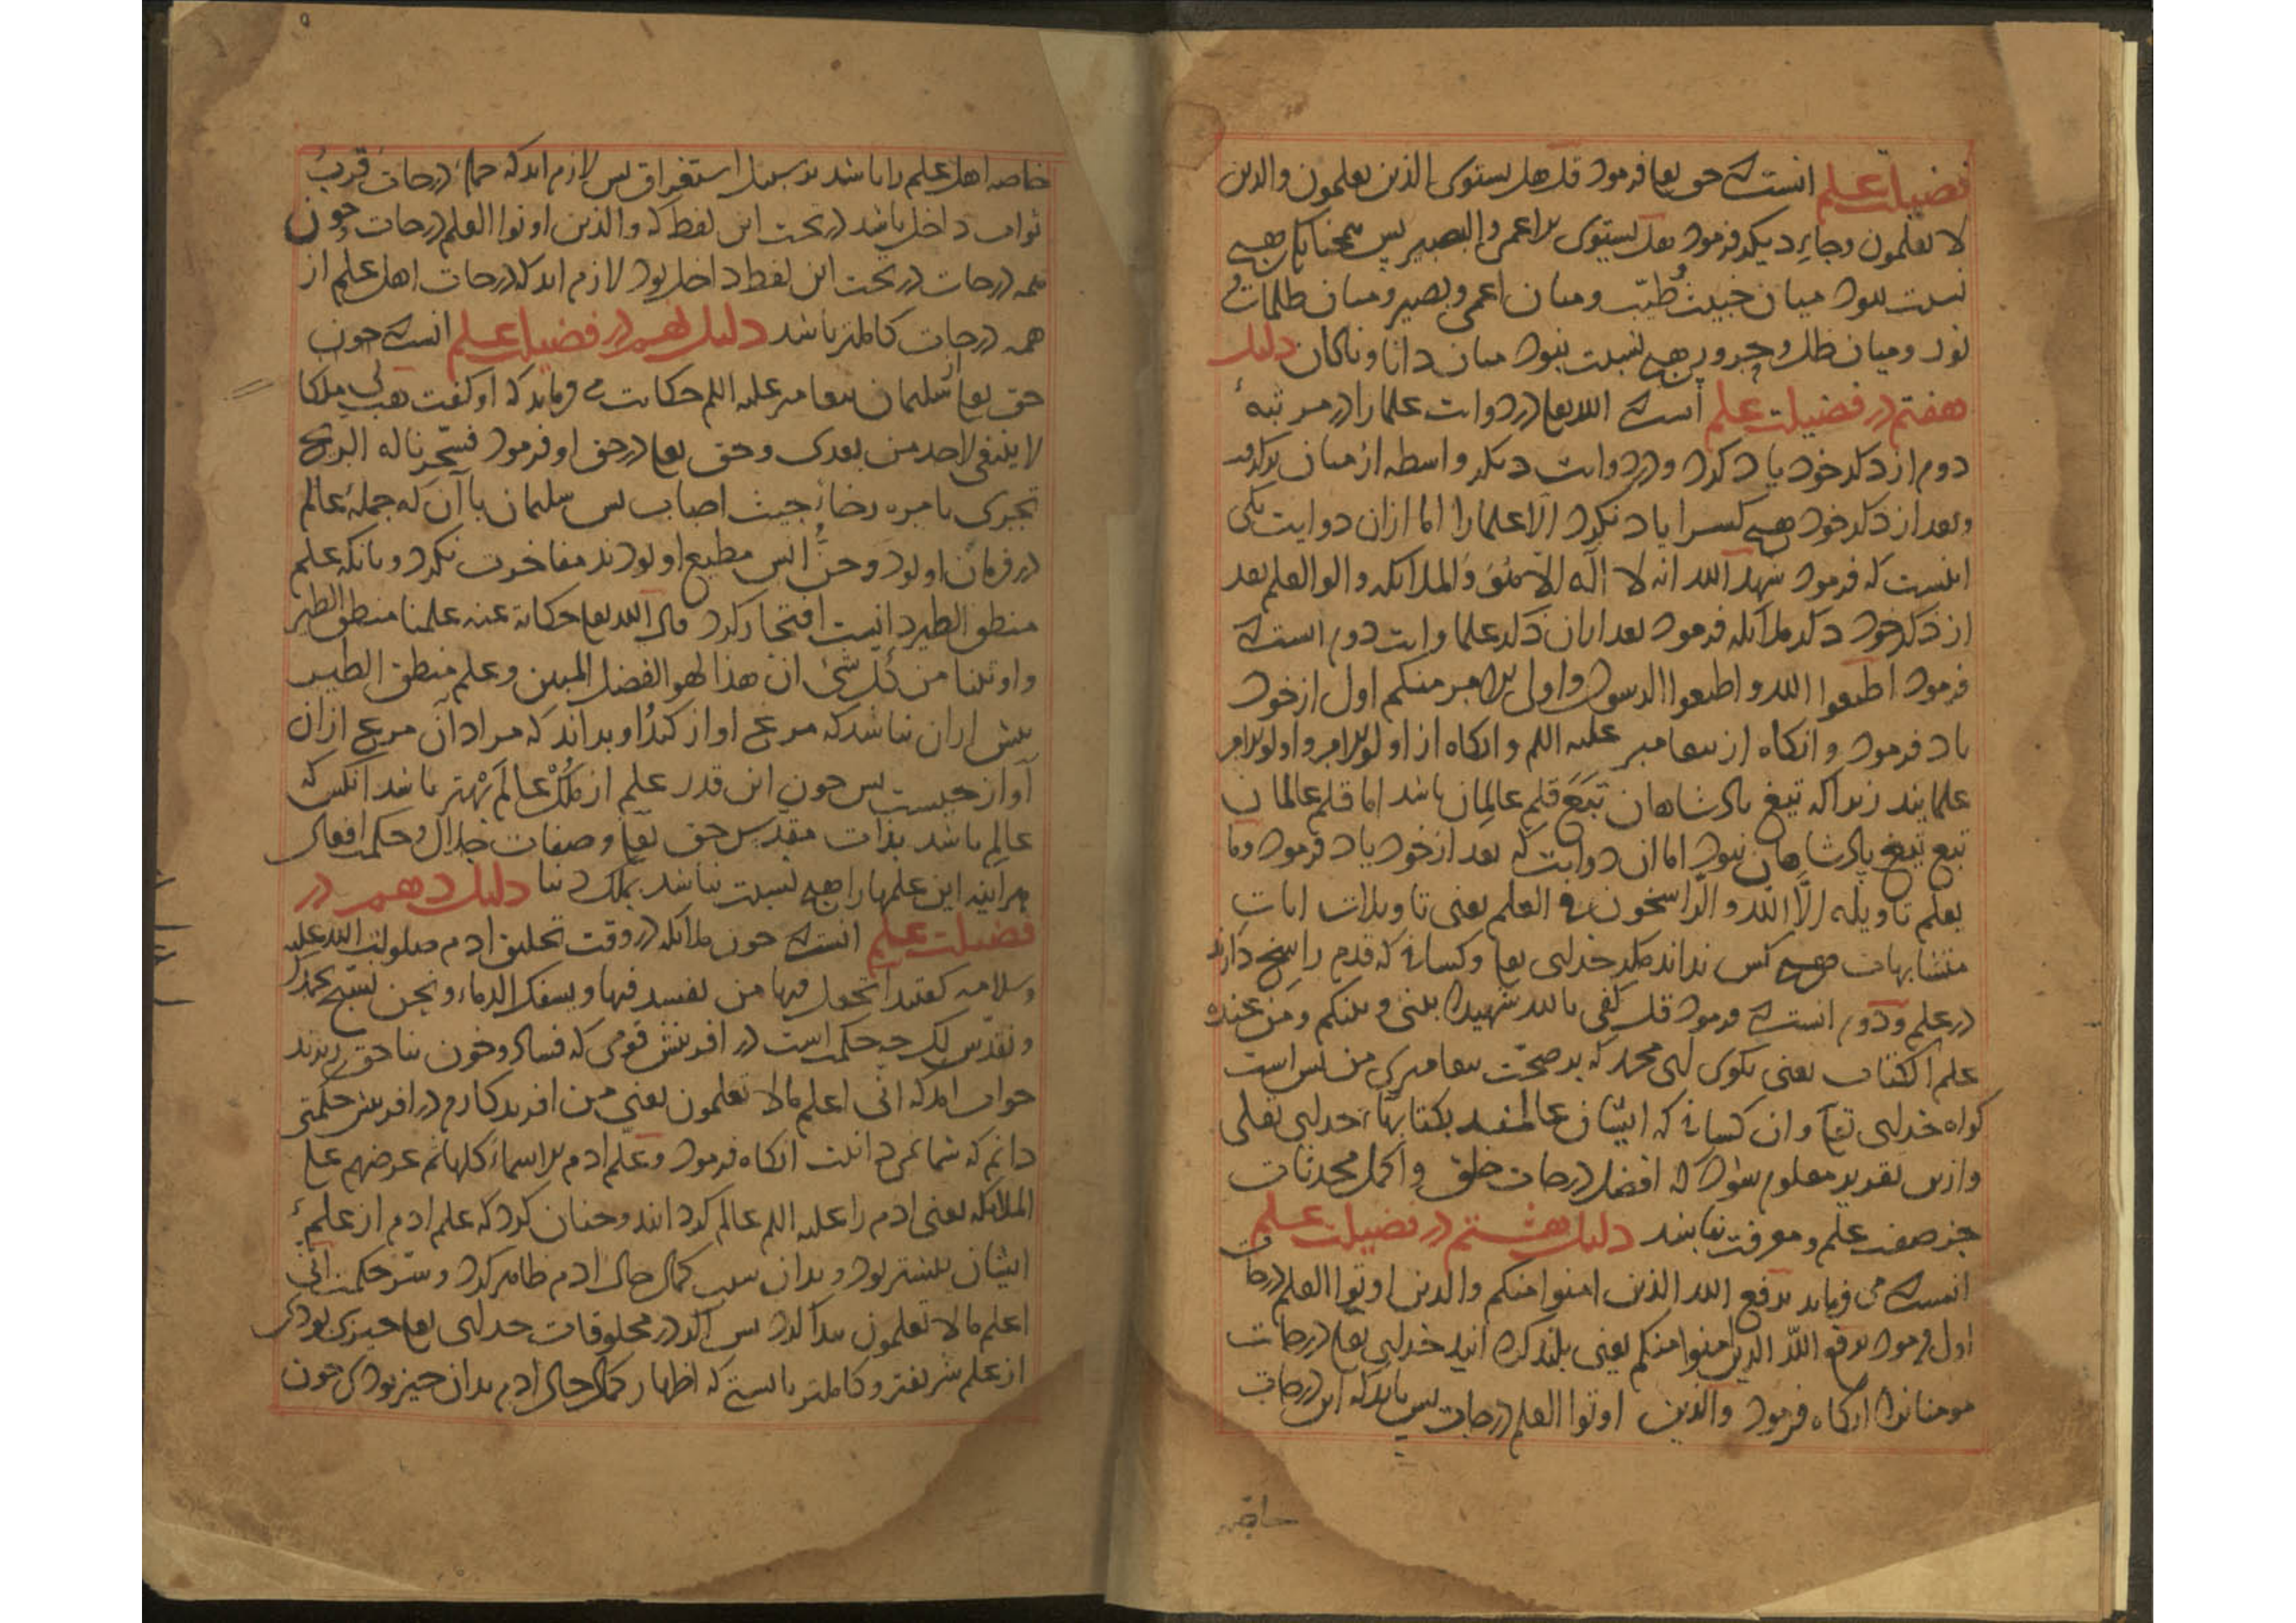 فضیلت علم انست که حق تعا فرمود قل هل یستوی الذین یعلمون والذین
لا یعلمون وجای دیگر فرمود هل یستوی الاعمی والبصیر پس همچنانک هیچ
نسبت نبود میان خبیث و طیّب و میان اعمی و بصیر و میان ظلمات و
نور و میان ظل و حرور هیچ نسبت نبود میان دانا و نادان دلیل
هفتم در فضیلت علم آنست که الله تعا در دو ایت علما را در مرتبهٔ
دوم از ذکر خود یاد کرد و در دو ایت دیگر واسطه از میان برگرفت
و بعد از ذکر خود هیچ کس را یاد نکرد الّا علما را اما ازان دو ایت یکی
اینست که فرمود شهد الله انه لا اله الّا هو والملائکه واولوا العلم بعد
از ذکر خود ذکر ملائکه فرمود بعد ازان ذکر علما و ایت دوم انست که
فرمود اطیعوا الله و اطیعوا الرسول و اولی الامر منکم اول از خود
یاد فرمود و انکاه از پیغامبر علیه السلم و انکاه از اولوالامر و اولوالامر
علمایند زیرا که تیغ پادشاهان تبَع قلم عالمان باشد اما قلم عالمان
تبع تیغ پادشاهان نبود اما ان دو ایت که بعد از خود یاد فرمود وما
یعلم تاویله الّا الله والرّاسخون فی العلم یعنی تاویلات ایات
متشابهات هیچ کس نداند مکر خدای تعا و کسانی که قدم راسخ دارند
در علم و دوم انست که فرمود قل کفی بالله شهیدا بینی و بینکم ومن عنده
علم الکتاب یعنی بکوی ای محمد که بر صحّت پیغامبری من بس است
کواه خدای تعا و ان کسانی که ایشان عالمند بکتابهاء خدای تعالی
و ازین تقدیر معلوم شود که افضل درجات خلق و اکمل محدثات
جز صفت علم و معرفت نباشد دلیل هشتم در فضیلت علم
انست که می فرماید یرفع الله الذین امنوا منکم والذین اوتوا العلم درجات
اول فرمود یرفع اللّه الذین امنوا منکم یعنی بلند کرد انید خدای تعا درجات
مومنانرا انکاه فرمود والذین اوتوا العلم درجات پس باید که این درجات
خاصه
خاصه اهل علم را باشد بر سبیل استغراق پس لازم اید که جملهٔ درجات قربتٔ
ثواب داخل باشد در تحت این لفظ که والذین اوتوا العلم درجات و چون
همه درجات در تحت این لفظ داخل بود لازم اید که درجات اهل علم از
همه درجات کاملتر باشد دلیل نهم در فضیلت علم انست که چون
حق تعا از سلیمان پیغامبر علیه السلم حکایت می فرماید که او کفت هب لی ملکا
لا ینبغی لاحد من بعدی و حق تعا در حق او فرمود فسخّرنا له الریح
تجری بامره رخاءً حیث اصاب پس سلیمان با آن که جملهٔ عالم
در فرمان او بود و جنّ و انس مطیع او بودند مفاخرت نکرد و بانکه علم
منطق الطیر دانست افتخار کرد قال الله تعا حکایة عنه علمنا منطق الطیر
واوتینا من کل شئ ان هذا لهو الفضل المبین و علم منطق الطیر
بیش ازان نباشد که مرغ اواز کند او بداند که مراد آن مرغ ازان
آواز چیست پس چون این قدر علم از ملک عالم بهتر باشد آنکس که
عالم باشد بذات مقدّس حق تعا و صفات جلال و حکمت افعال
هر آینه این علمها را هیچ نسبت نباشد بملک دنیا دلیل دهم در
فضیلت علم انست که چون ملائکه در وقت تخلیق ادم صلوات الله علیه
وسلامه کفتند اتجعل فیها من یفسد فیها ویسفک الدماء ونحن نسبّح بحمدک
ونقدّس لک چه حکمت است در افرینش قومی که فساد و خون بناحق ریزند
جواب امد که انّی اعلم مالا تعلمون یعنی من افریدکارم در افرینش حکمتی
دانم که شما نمی دانیت انکاه فرمود وعلّم ادم الاسماءَ کلها ثم عرضهم علی
الملائکه یعنی ادم را علیه السلم عالم کردانید و چنان کرد که علم ادم از علمِ
ایشان بیشتر بود و بدان سبب کمال حال ادم ظاهر کرد و سّر حکمت انّی
اعلم مالا تعلمون پیدا کرد پس اکر در مخلوقات خدای تعا چیزی بودی
از علم شریفتر و کاملتر بایستی که اظهار کمال حال ادم بدان چیز بودی چون